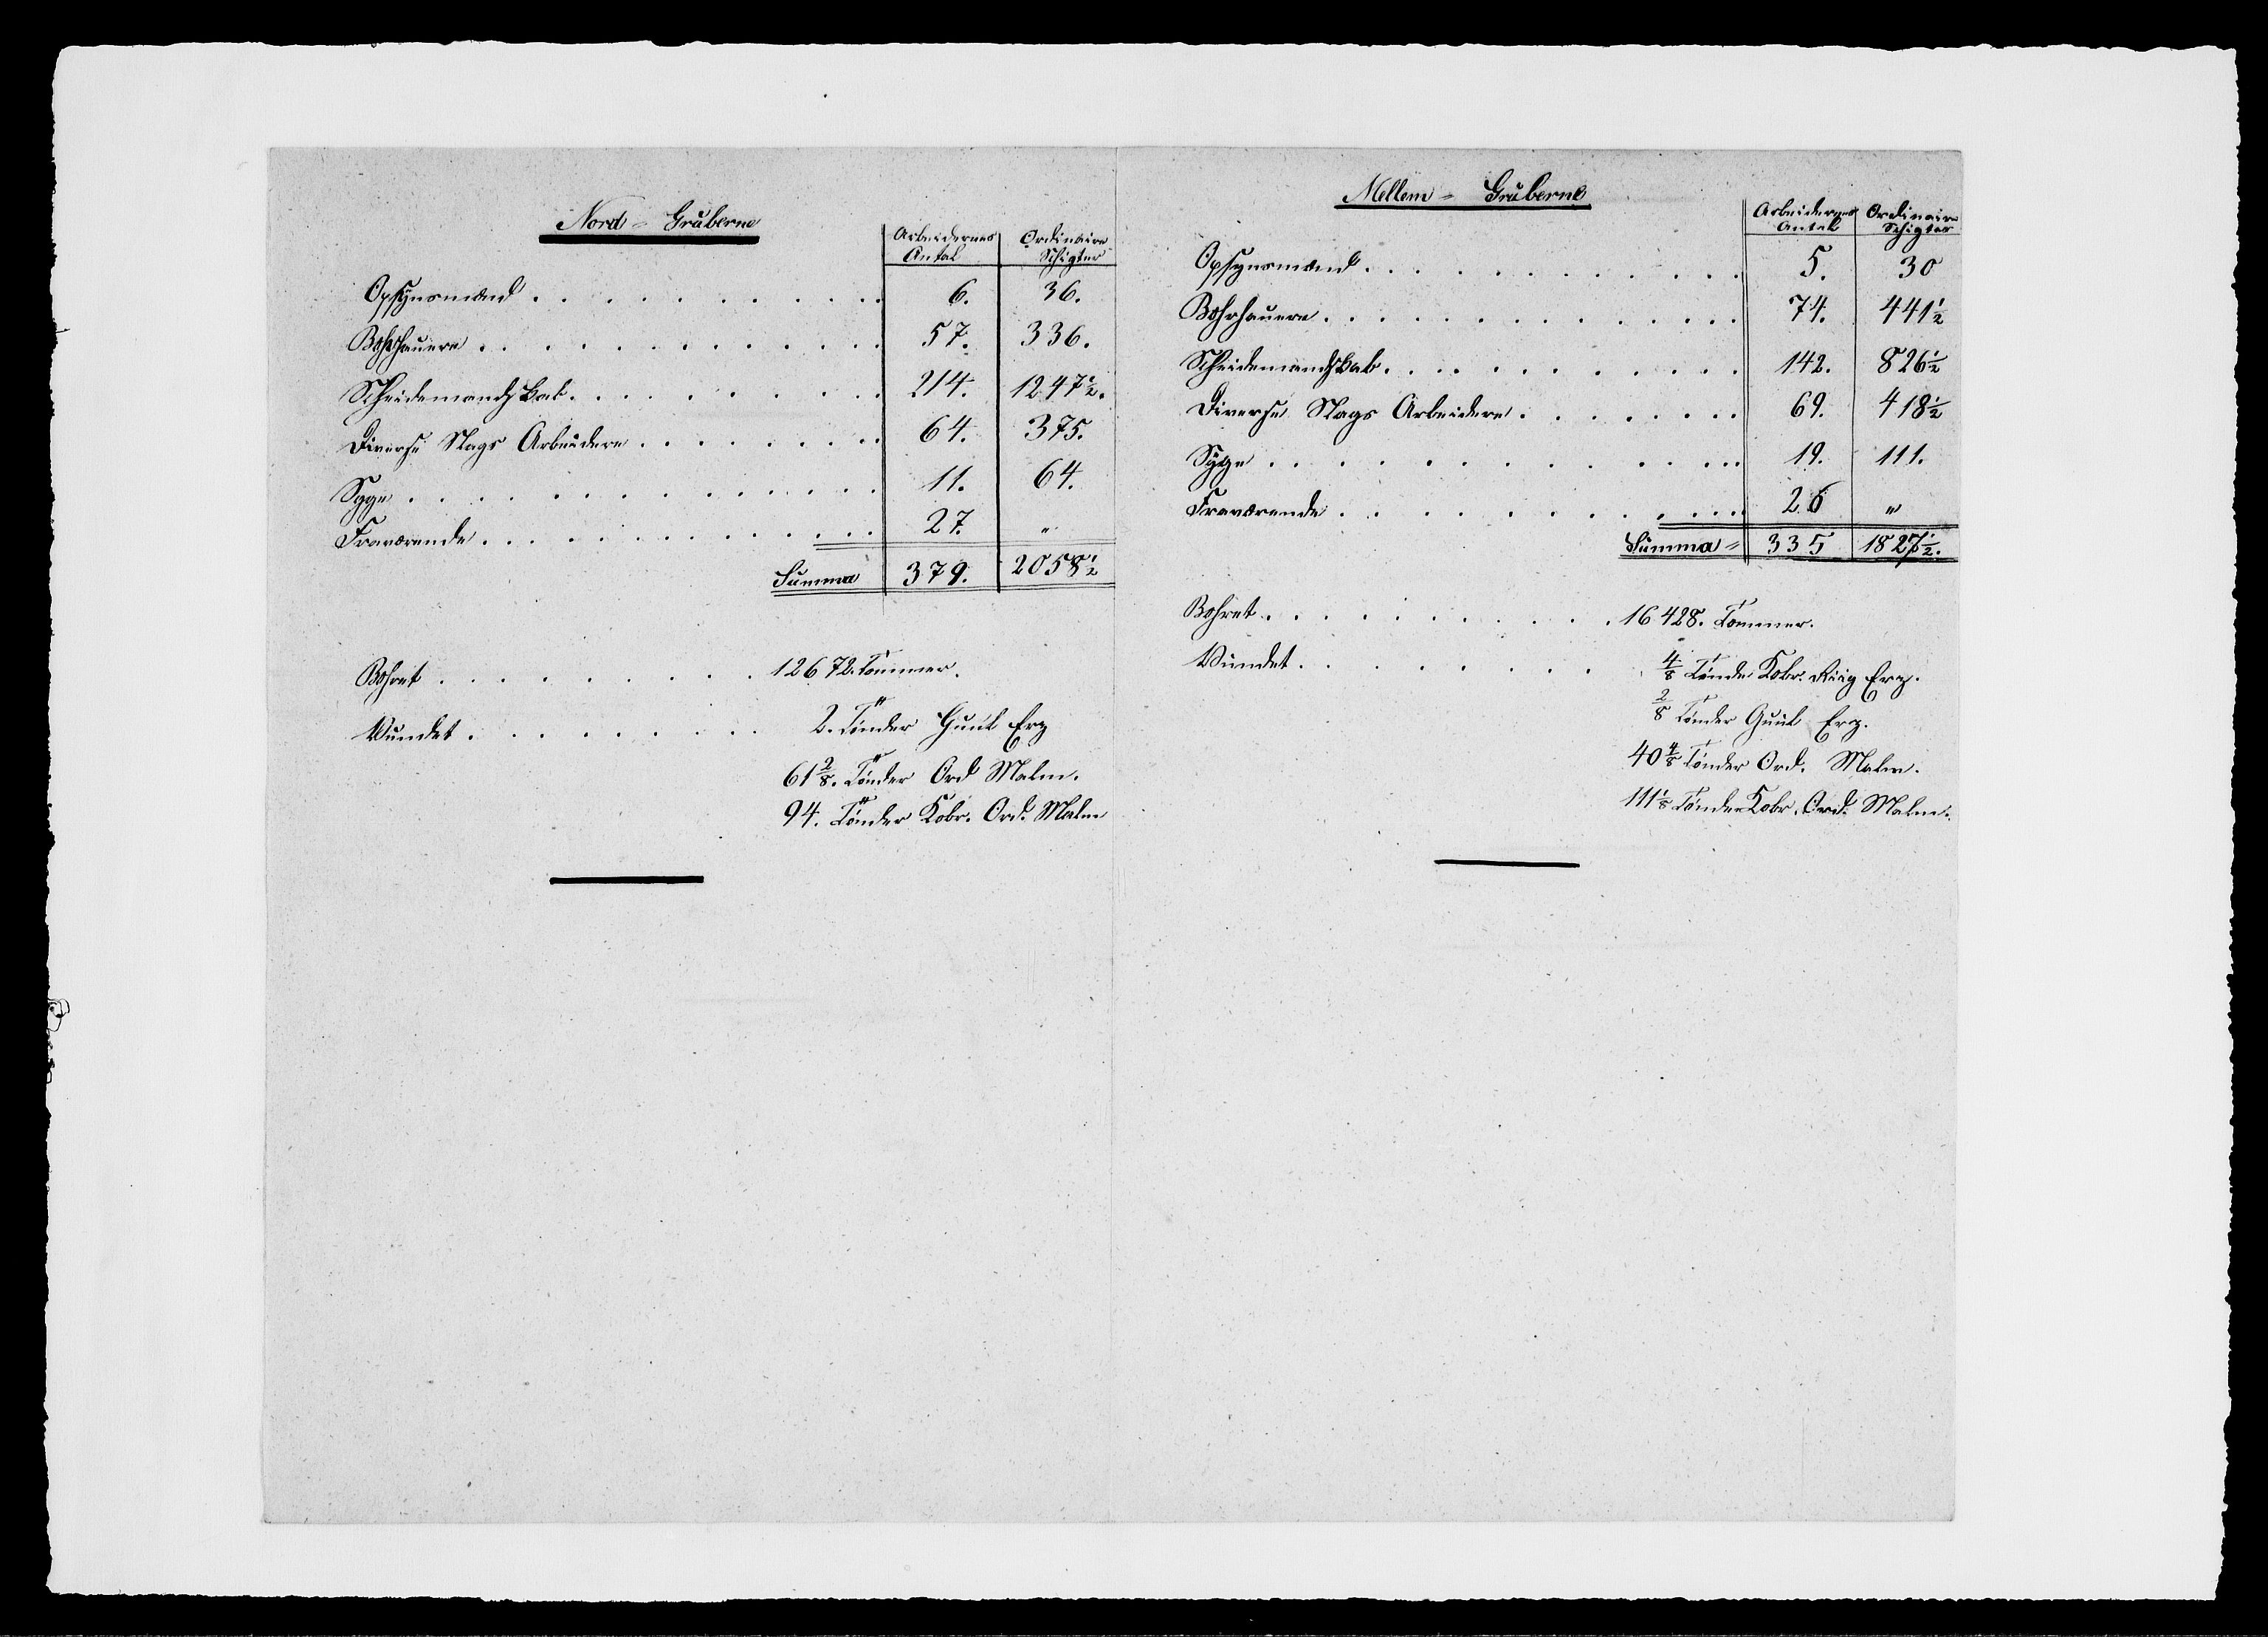 Nord - Grŭberne
Arbeidernes Antal Ordinaire Schigter
Opsynsmænd . . . . . . . . . . 6. 36.
Bohrhauere . . . . . . . . . . 57. 336.
Scheidemandskab . . . . . . . . . . 214. 1247½.
Diverse Slags Arbeidere . . . . . . . . 64. 375.
Syge . . . . . . . . . . 11. 64.
Fraværende . . . . . . . . . . 27. "
Summa 379. 2058½
Bohret . . . . . . . . . . 12672. Tommer.
Vundet . . . . . . . . . . 2. Tønder Guul Erz
61 2/8. Tønder Ord Malm.
94. Tønder Kobr. Ord. Malm
Mellem - Grŭberne
Arbeidernes Antal Ordinaire Schigter
Opsynsmænd . . . . . . . . . . 5. 30
Bohrhauere . . . . . . . . . . 74. 441½
Scheidemandskab . . . . . . . . . . 142. 826½
Diverse Slags Arbeidere . . . . . . . . 69. 418½
Syge . . . . . . . . . . 19. 111.
Fraværende . . . . . . . . . . 26 "
Summa = 335 1827½.
Bohret . . . . . . . . . . 16428. Tommer.
Vundet . . . . . . . . . . 4/8 Tønde Kobr. Riig Erz.
2/8 Tønder Guul Erz.
40 4/8 Tønder Ord. Malm.
111 1/8 Tønder Kobr. Ord. Malm.